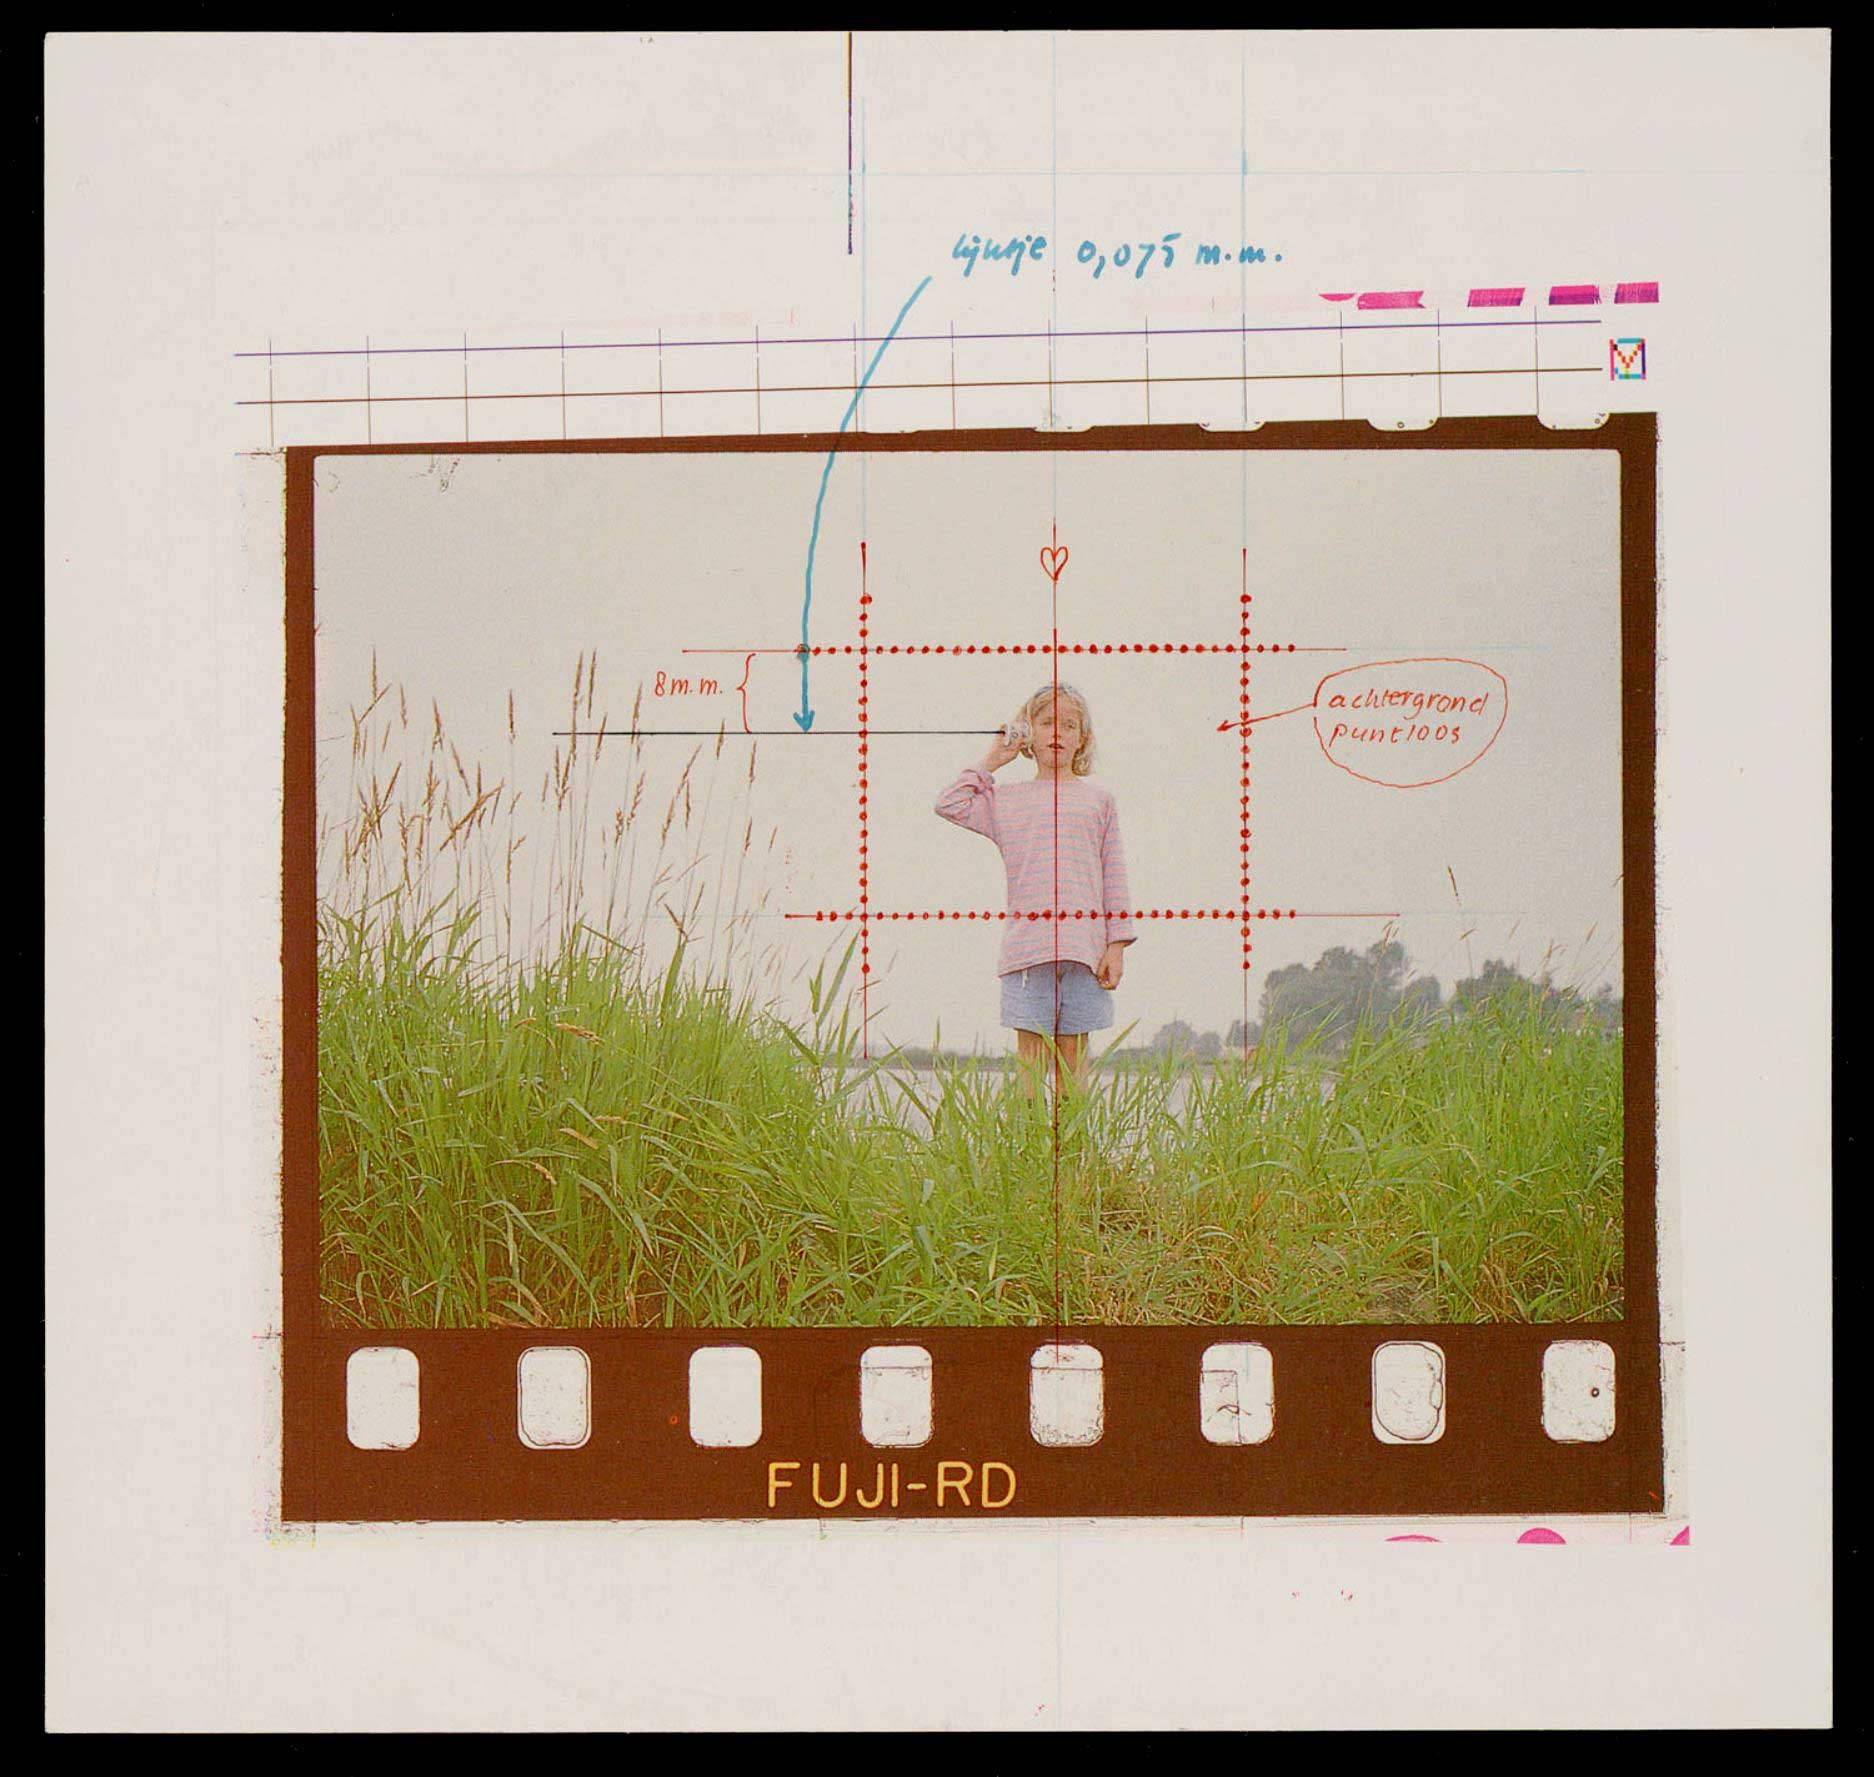 lijntje 0,075 m.m.
8 m.m.
achtergrond
puntloos
FUJI-RD